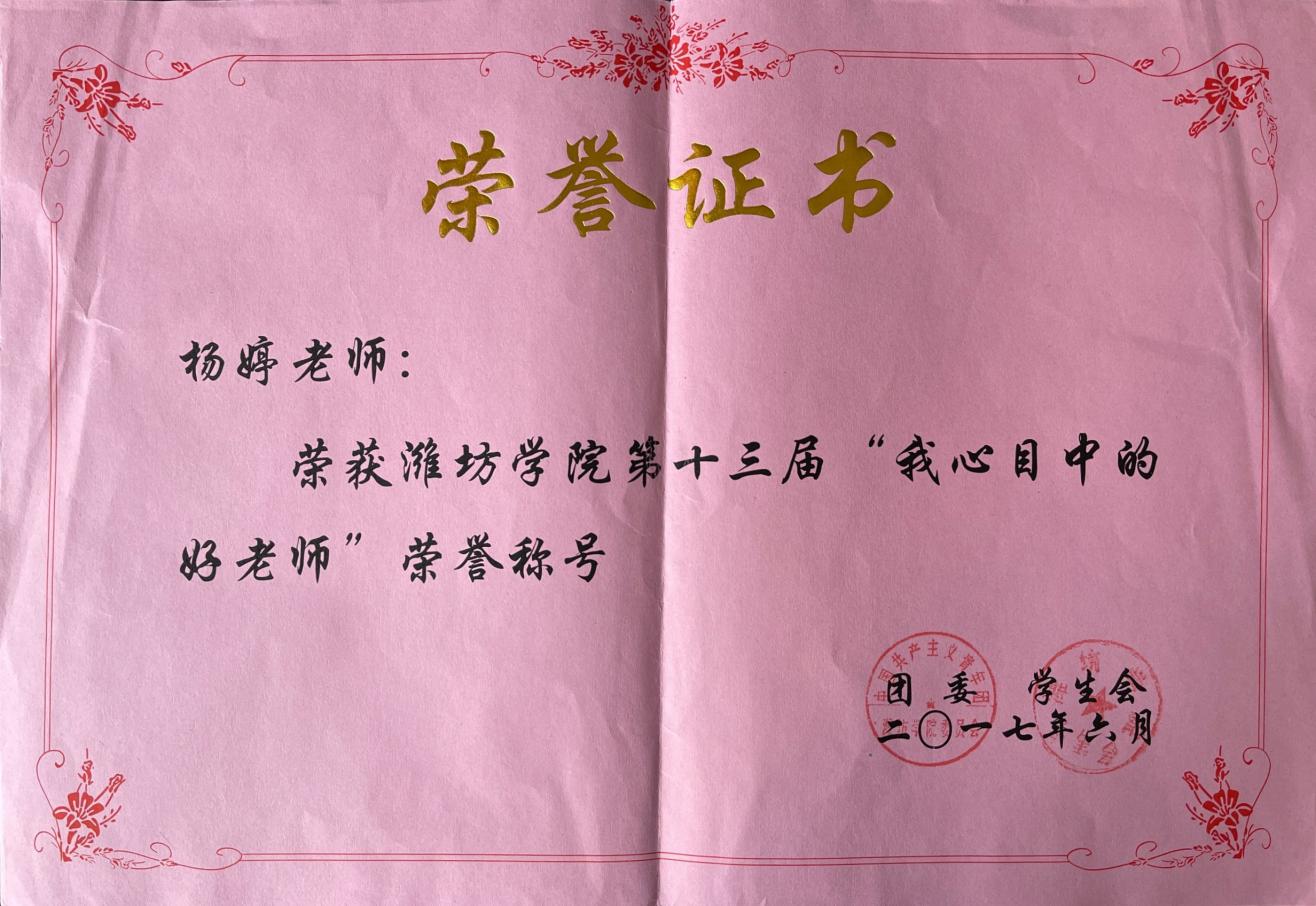 荣誉证书
杨婷老师：
荣获潍坊学院第十三届“我心目中的
好老师”荣誉称号
中国共产主义青年团
团 委 学生会
二〇一七年六月